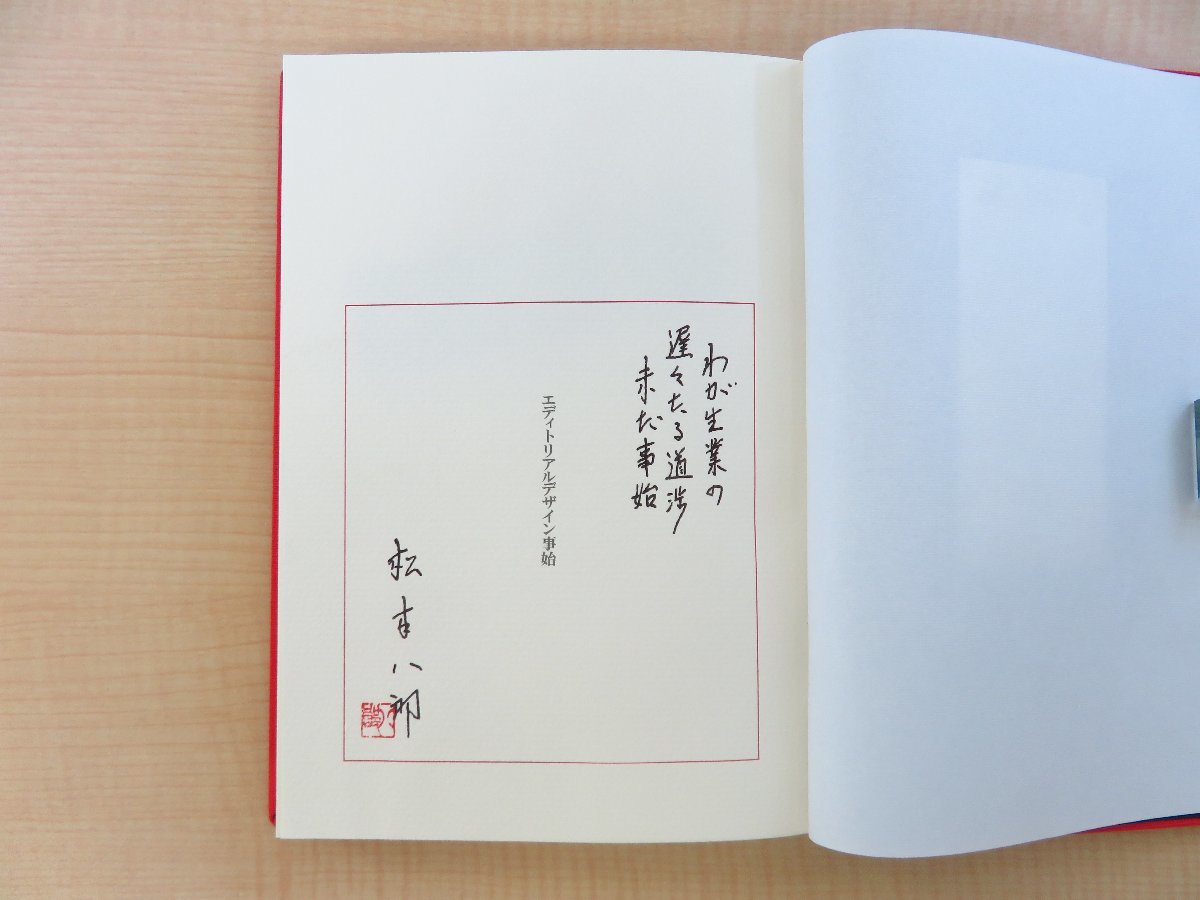 わが生業の
遅々たる道渉
未だ事始
エディトリアルデザイン事始
松本八郎